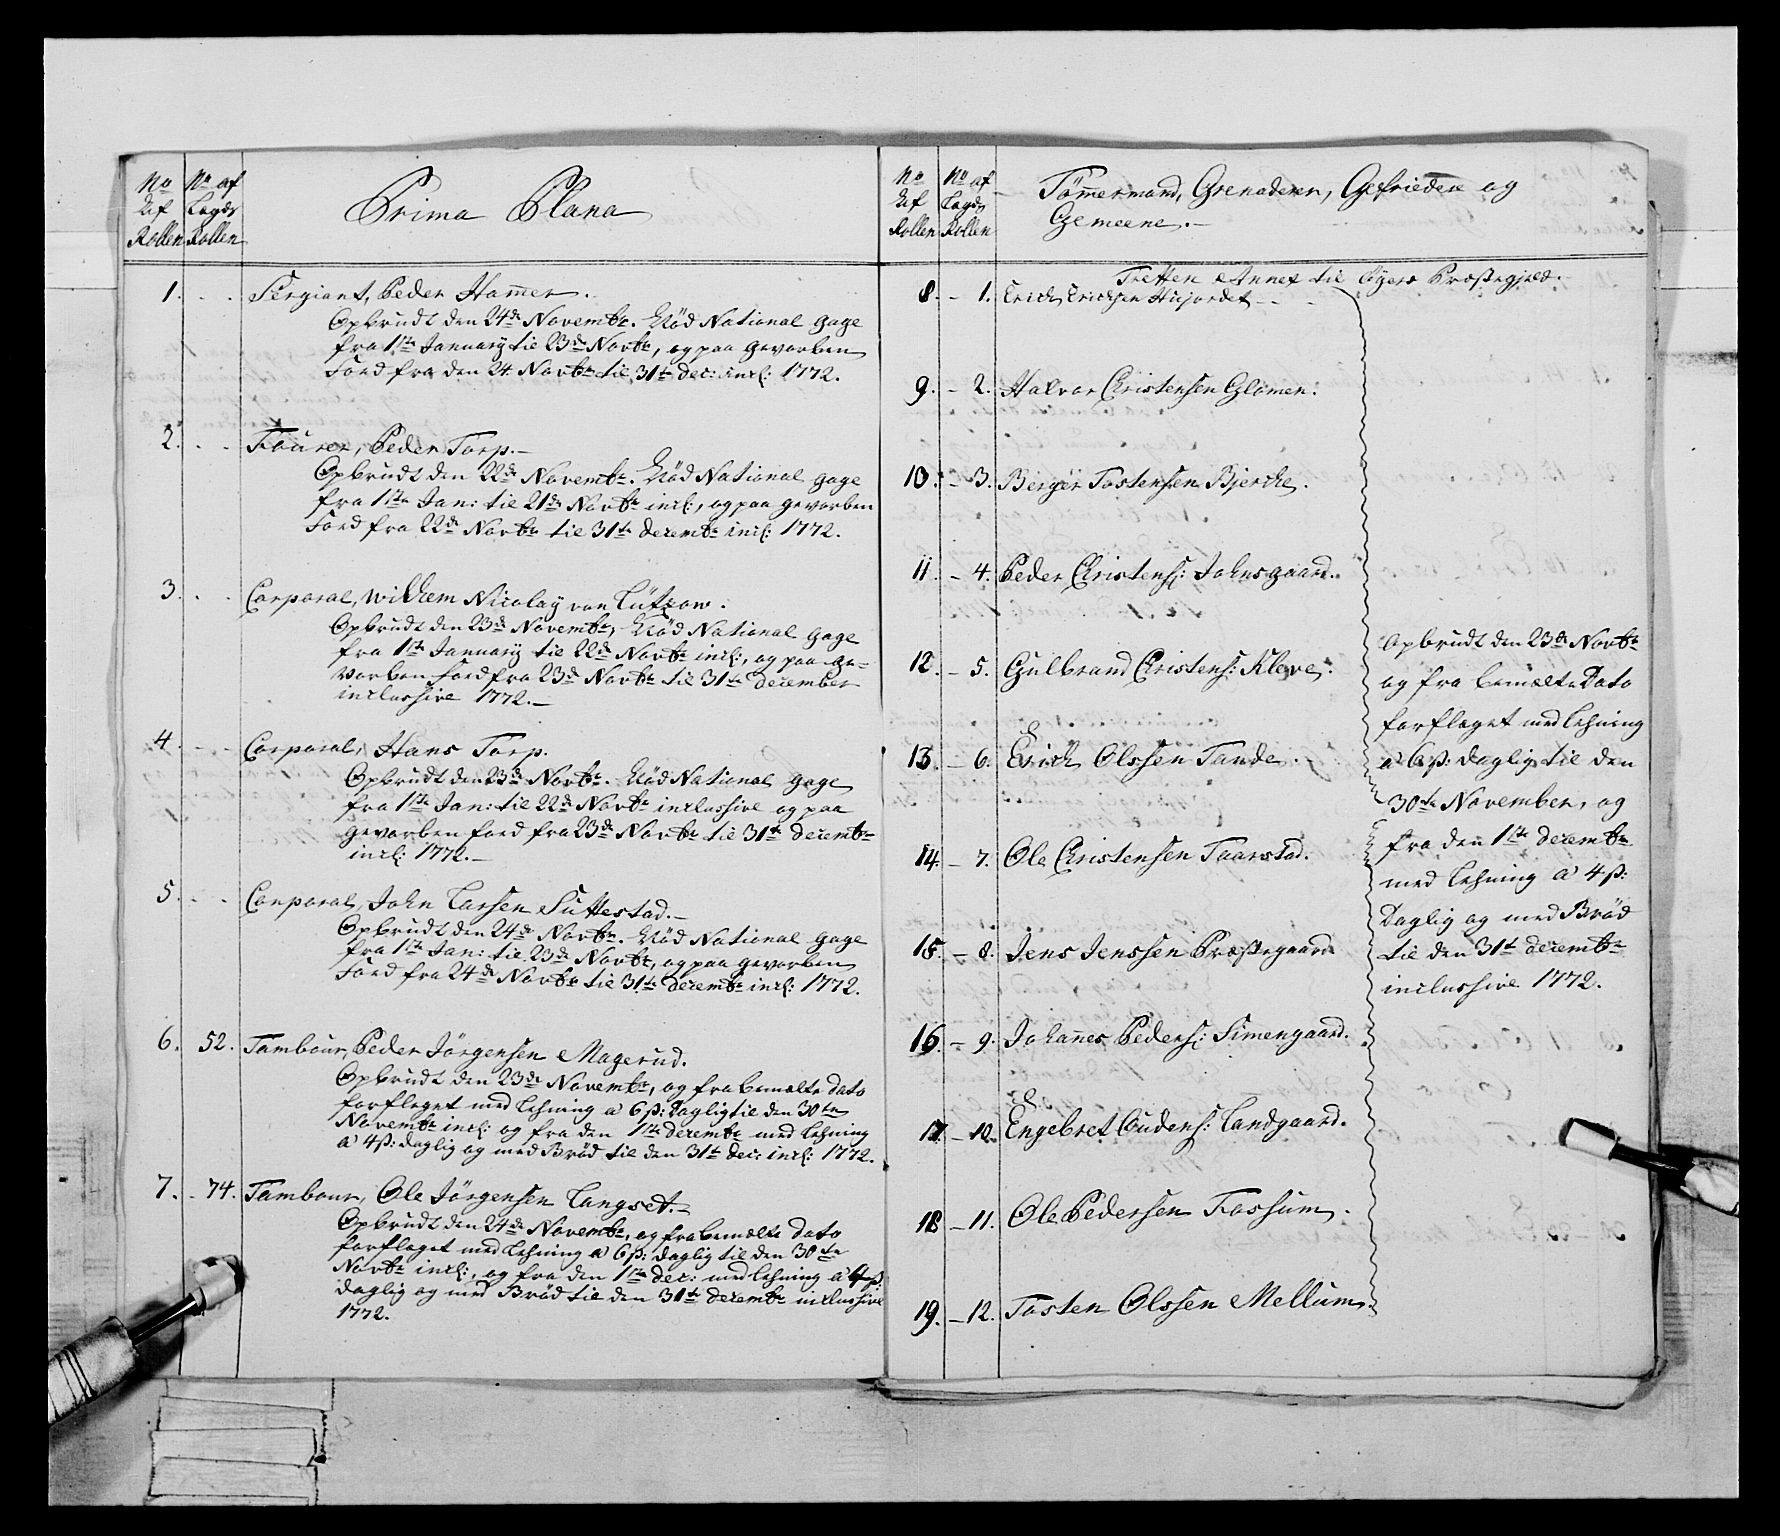 No Af Rollen
No af Lægds Rollen
Prima Plana
1. Sergiant, Peder Hamer.
Opbrudt den 24de Novembr. Nöd National gage
fra 1ste January til 23de Novbr, og paa gevorben
Food fra den 24 Novbr til 31te dec: incl: 1772.
2. Fourer, Peder Torp.
Opbrudt den 22de Novembr. Nöd National gage
fra 1ste Jan: til 21de Novbr incl:, og paa gevorben
Food fra 22de Novbr til 31te decembr incl: 1772.
3. Corporal, Wilhem Nicolay von Lützow.
Opbrudt den 23de Novembr, Nöd National gage
fra 1ste January til 22de Novbr incl:, og paa ge-
vorben food fra 23de Novbr til 31te december
inclussive 1772.
4. Corporal, Hans Torp.
Opbrudt den 23de Novbr. Nöd National gage
fra 1ste Jan: til 22de Novbr inclussive og paa
gevorben food fra 23de Novbr til 31te decembr
incl: 1772.
5. Corporal, John Larsen Suttestad.
Opbrudt den 24de Novbr. Nöd National gage
fra 1ste Jan: til 23de Novbr, og paa gevorben
Food fra 24de Novbr til 31te decembr incl: 1772.
6. 52. Tambour, Peder Jörgensen Magerud.
Opbrudt den 23de Novembr, og fra bemælte dato
forfleget med Lehning a 6ß: daglig til den 30te
Novembr incl: og fra den 1ste decembr med Lehning
a 4ß: daglig og med Bröd til den 31te dec: incl: 1772.
7. 74. Tambour, Ole Jörgensen Langset.
Opbrudt den 24de Novembr, og fra bemælte dato
forfleget med Lehning a 6ß: daglig til den 30te
Novbr incl:, og fra den 1ste dec: med Lehning a 4ß:
daglig og med Bröd til den 31te decembr inclussive
1772.
No Af Rollen
No af Lægds Rollen
Tömermand, Grenaderer, Gefriedere og
Gemeene.
Tretten Annex til Öyers Præstegjeld.
8. 1. Erich Erichsen Skjordet
9. 2. Halvor Christensen Glomen.
10. 3. Berger Tostensen Bjerche.
11. 4. Peder Christens: Johnsgaard.
12. 5. Gulbrand Christens: Kleve.
13. 6. Erich Olssen Tande.
14. 7. Ole Christensen Taarstad.
15. 8. Jens Jenssen Præstegaard
16. 9. Johanes Peders: Simengaard.
17. 10. Engebret Gudens: Landgaard.
18. 11. Ole Pedersen Fossum.
19. 12. Tosten Olssen Mellum.
Opbrudt den 23de Novbr
og fra bemælte Dato
forfleget med Lehning
a 6ß: daglig til den
30te November, og
fra den 1ste decembr
med Lehning a 4ß:
Daglig og med Bröd
til den 31te decembr
inclussive 1772.